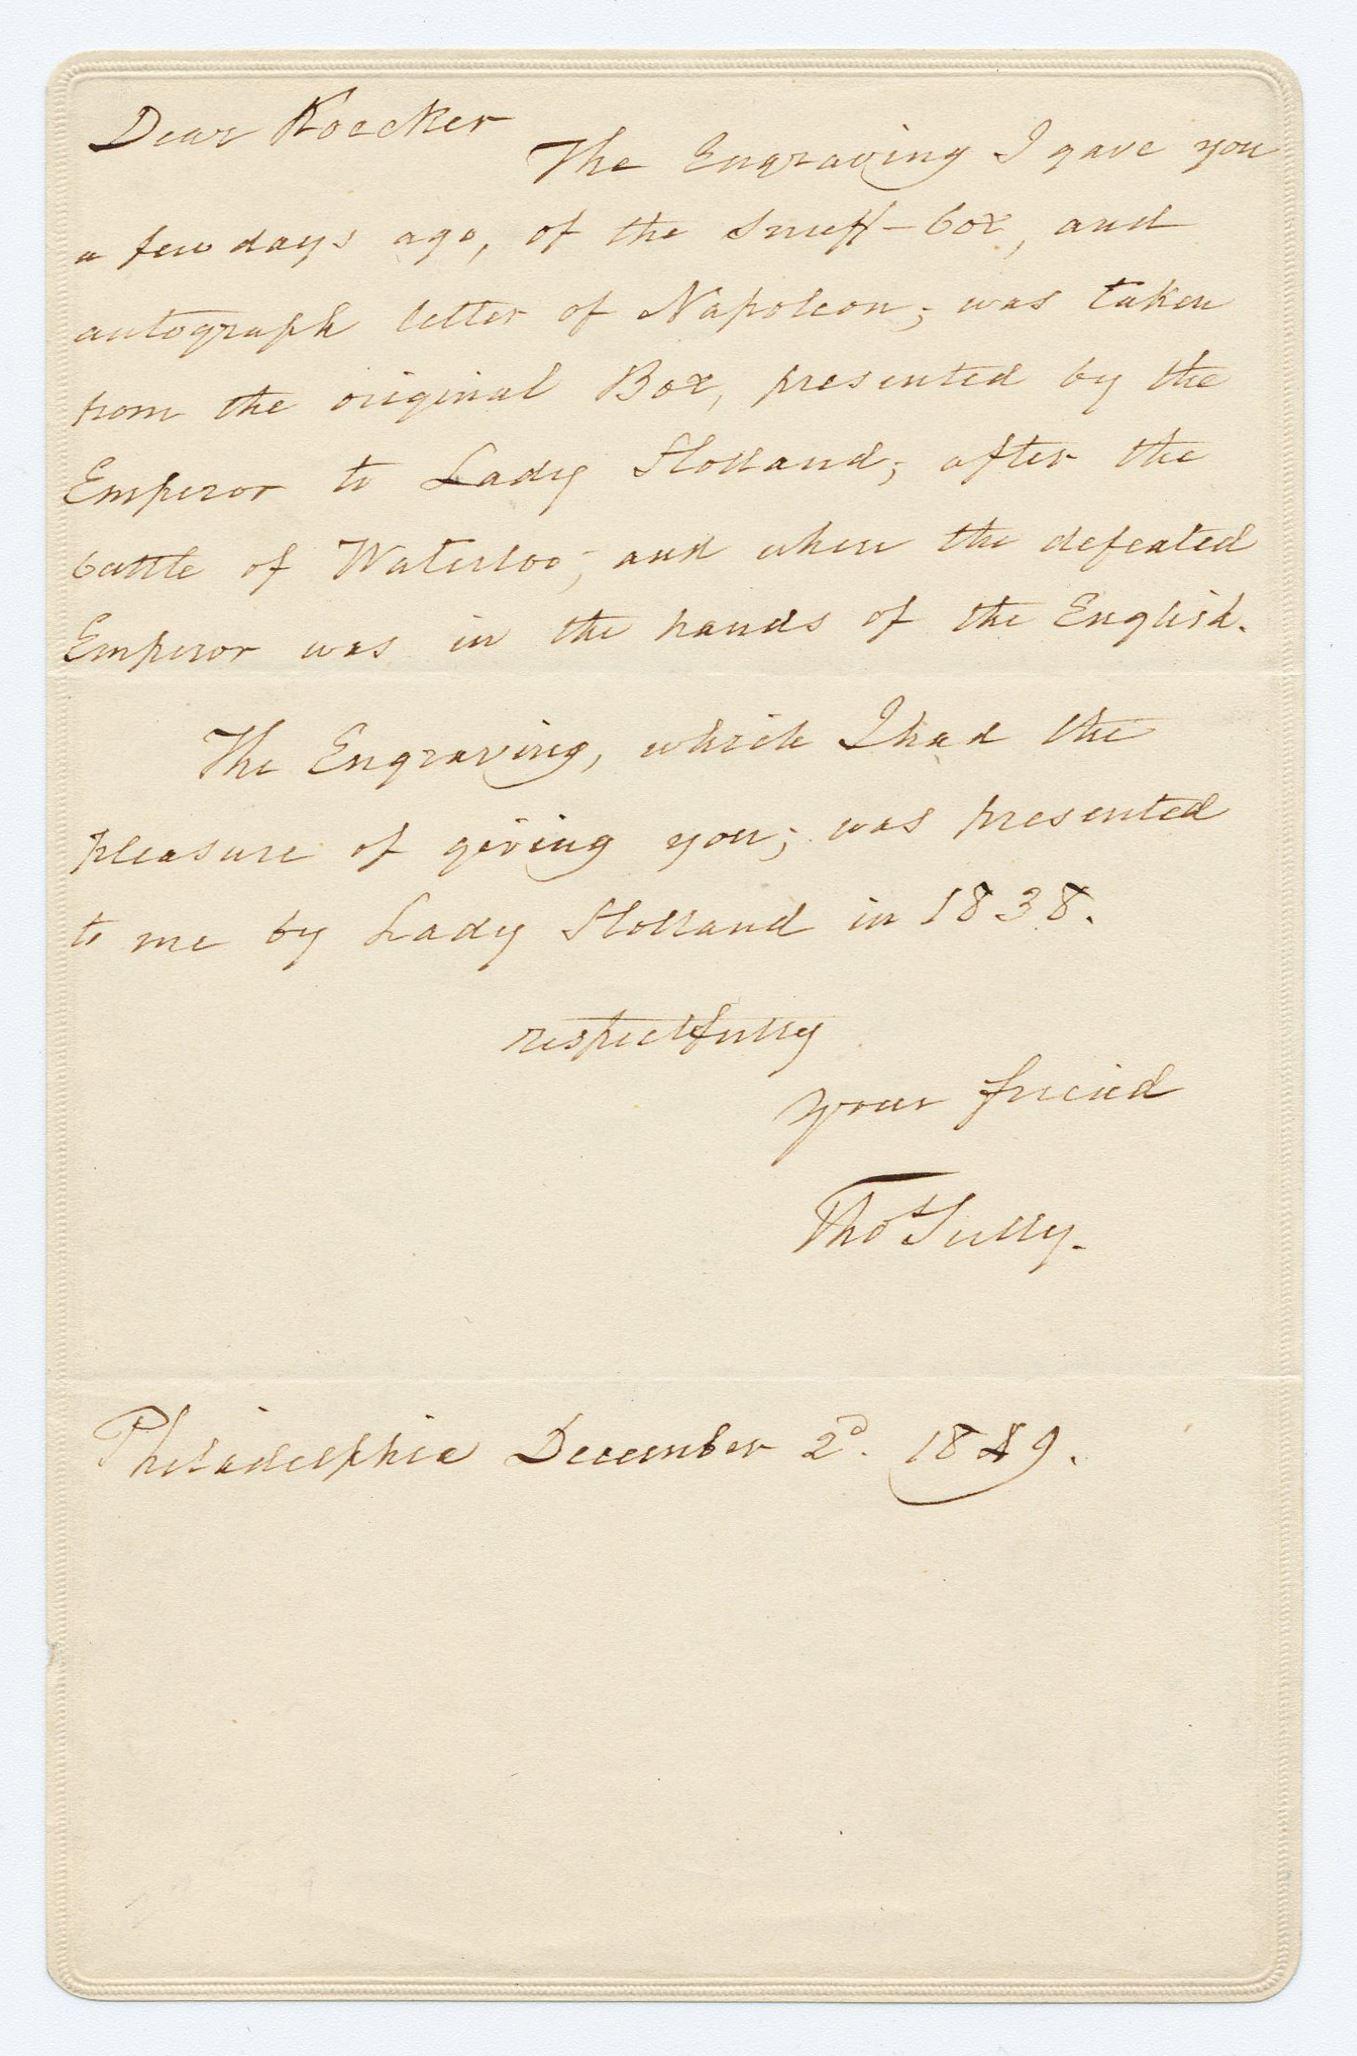 Dear Koecker
The Engraving I gave you
a few days ago, of the Snuff-box, and
autograph letter of Napoleon; was taken
from the original Box, presented by the
Emperor to Lady Holland; after the
battle of Waterloo; and when the defeated
Emperor was in the hands of the English.
The Engraving, which I had the
pleasure of giving you; was presented
to me by Lady Holland in 1838.
respectfully
your friend
Thos Sully.
Philadelphia December 2d. 1849.